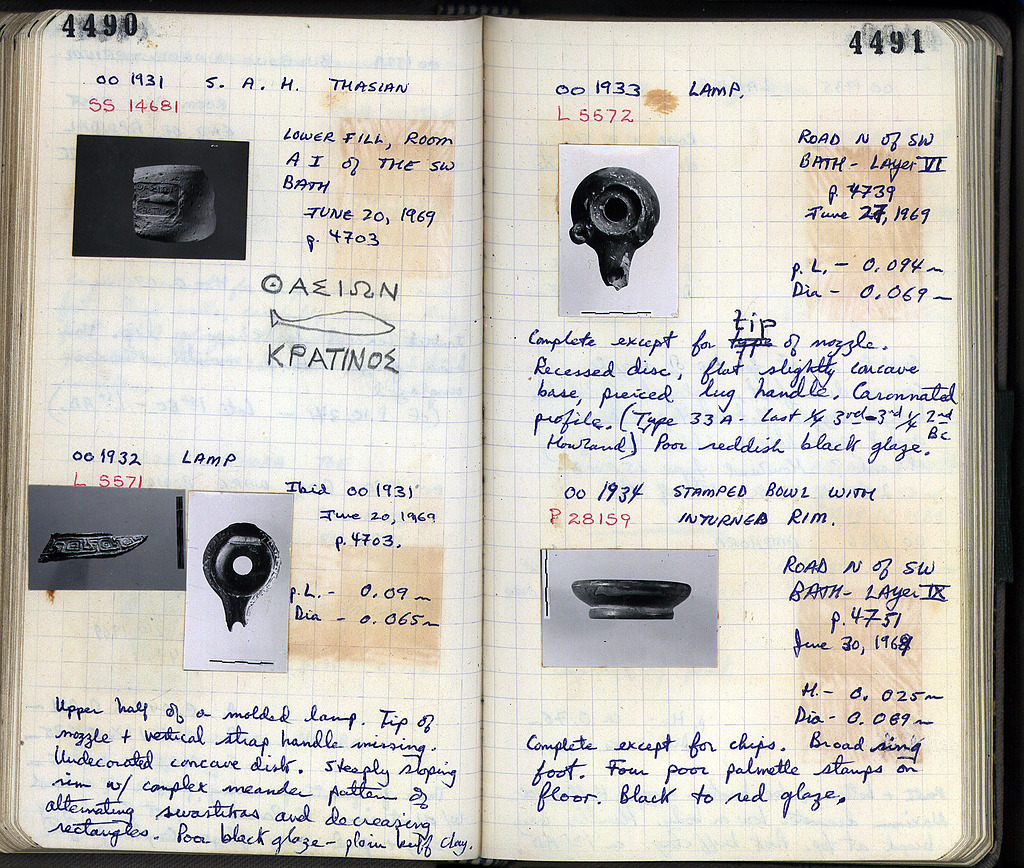 4490
OO 1931 S. A. H. THASIAN
SS 14681
LOWER FILL, ROOM
A I of THE SW
BATH
JUNE 20, 1969
p. 4703
ΘΑΣΙΩΝ
ΚΡΑΤΙΝΟΣ
OO 1932 LAMP
L 5571
Ibid OO 1931
June 20, 1969
p. 4703.
p. L. - 0.09 m
Dia - 0.065 m
Upper half of a molded lamp. Tip of
nozzle + vertical strap handle missing.
Undecorated concave disk. Steeply sloping
rim w/ complex meander pattern of
alternating swastikas and decreasing
rectangles. Poor black glaze - plain buff clay.
4491
OO 1933 LAMP.
L 5572
ROAD N of SW
BATH - LAYer VI
p. 4739
June 27, 1969
p. L. - 0.094 m
Dia - 0.069 m
Complete except for tip of nozzle.
Recessed disc, flat slightly concave
base, pierced lug handle. Caronnated
profile. (Type 33 A - Last 1/4 3rd - 3rd 1/4 2nd BC
Howland) Poor reddish black glaze.
OO 1934 STAMPED BOWL WITH
P 28159 INTURNED RIM.
ROAD N of SW
BATH - LAYer IX
p. 4751
June 30, 1969
H. - 0.025 m
Dia - 0.089 m
Complete except for chips. Broad ring
foot. Four poor palmette stamps on
floor. Black to red glaze.